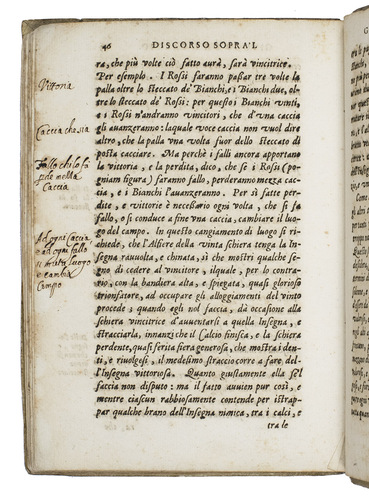 46 DISCORSO SOPRA'L
ra, che più volte ciò fatto aurà, sarà vincitrice.
Per esempio. I Rossi faranno paßar tre volte la
palla oltre lo steccato de' Bianchi, e i Bianchi due, ol-
tre lo steccato de' Rossi: per questo i Bianchi vinti,
e i Rossi n'andranno vincitori, che d'vna caccia
gli auanzeranno: laquale voce caccia non vuol dire
altro, che la palla vna volta fuor dello steccato di
posta cacciare. Ma perchè i falli ancora apportano
la vittoria, e la perdita, dico, che se i Rossi (po-
gniam figura) faranno fallo, perderanno mezza cac-
cia, e i Bianchi l'auanzeranno. Per sì fatte perdi-
te, e vittorie è neceßario ogni volta, che si fa
fallo, o si conduce a fine vna caccia, cambiare il luo-
go del campo. In questo cangiamento di luogo si ri-
chiede, che l'Alfiere della vinta schiera tenga la In-
segna rauuolta, e chinata, sì che mostri qualche se-
gno di cedere al vincitore, ilquale, per lo contra-
rio, con la bandiera alta, e spiegata, quasi glorioso
trionfatore, ad occupare gli alloggiamenti del vinto
procede; quando egli nol faccia, dà occasione alla
schiera vincitrice d'auuentarsi a quella Insegna, e
stracciarla, innanzi che il Calcio finisca, e la schiera
perdente, quasi ferita fiera generosa, che mostra i den-
ti, e riuolgesi, il medesimo straccio corre a fare del-
l'Insegna vittoriosa. Quanto giustamente ella sel
faccia non disputo: ma il fatto auuien pur così, e
mentre ciascun rabbiosamente contende per istrap-
par qualche brano dell'Insegna nimica, tra i calci, e
tra le
Vittoria
Caccia che sia
Fallo chi lo fa
perde mezza
Caccia
Ad ogni caccia
e ad ogni fallo
si muta luogo
e cambia
Campo